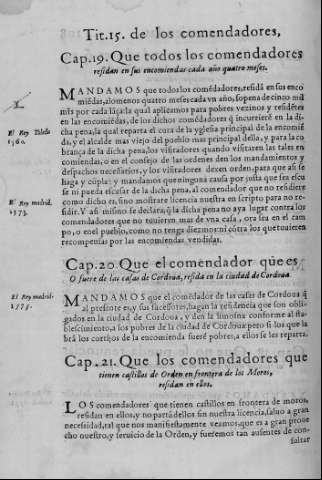 Tit.15. de los comendadores,
Cap.19. Que todos los comendadores
residan en sus encomiendas cada año quatro meses.
MANDAMOS que todos los comẽdadores, residã en sus enco
miẽdas, alomenos quatro meses cada vn año, so pena de cinco mil
mrs por cada
para pobres vezinos y residẽtes
en las encomiẽdas, de los dichos comẽdadores q̃ incurrierẽ en la di
cha pena, la qual reparta el cura de la yglesia principal de la encomiẽ
da, y el alcalde mas viejo del pueblo mas principal della, y para la co
brança de la dicha pena, los visitadores quando visitaren las tales en
comiendas, o en el consejo de las ordenes den los mandamientos y
despachos necessarios, y los visitadores dexen orden, para que assi se
haga y cũpla: y mandamos que ninguna causa por justa que sea escu
se ni pueda escusar de la dicha pena, al comendador que no residiere
como dicho es, sino mostrare licencia nuestra en scripto para no re-
sidir. Y assi mismo se declara, q̃ la dicha pena no aya lugar contra los
comendadores que no tuuieren mas de vna casa, ora sea en el cam
po, o en el pueblo, como no tenga diezmo ni cõtra los que tuuieren
recompensas por las encomiendas vendidas.
El Rey Toledo
1560.
El Rey madrid.
1573.
Cap.20 Que el comendador que es,
O fuere de las casas de Cordoua, resida en la ciudad de Cordoua.
El Rey madrid.
1573.
MANDAMOS que el comẽdador de las casas de Cordoua q̃
al presente es, y sus successores, hagan la residencia que son obli-
gados en la ciudad de Cordoua, y den la limosna conforme al sta-
blescimiento, a los pobres de la ciudad de Cordoua pero si los que la
brã los cortijos de la encomienda fuerẽ pobres, a ellos se les reparta.
Cap.21. Que los comendadores que
tienen castillos de Orden en frontera de los Moros,
residan en ellos.
LOS comendadores que tienen castillos en frontera de moros,
residan en ellos, y no partã dellos sin nuestra licencia, saluo a gran
necessidad, tal que nos manifiestamente veamos, que es a gran proue
cho nuestro, y seruicio de la Orden, y fueremos tan ausentes de con-
saltar